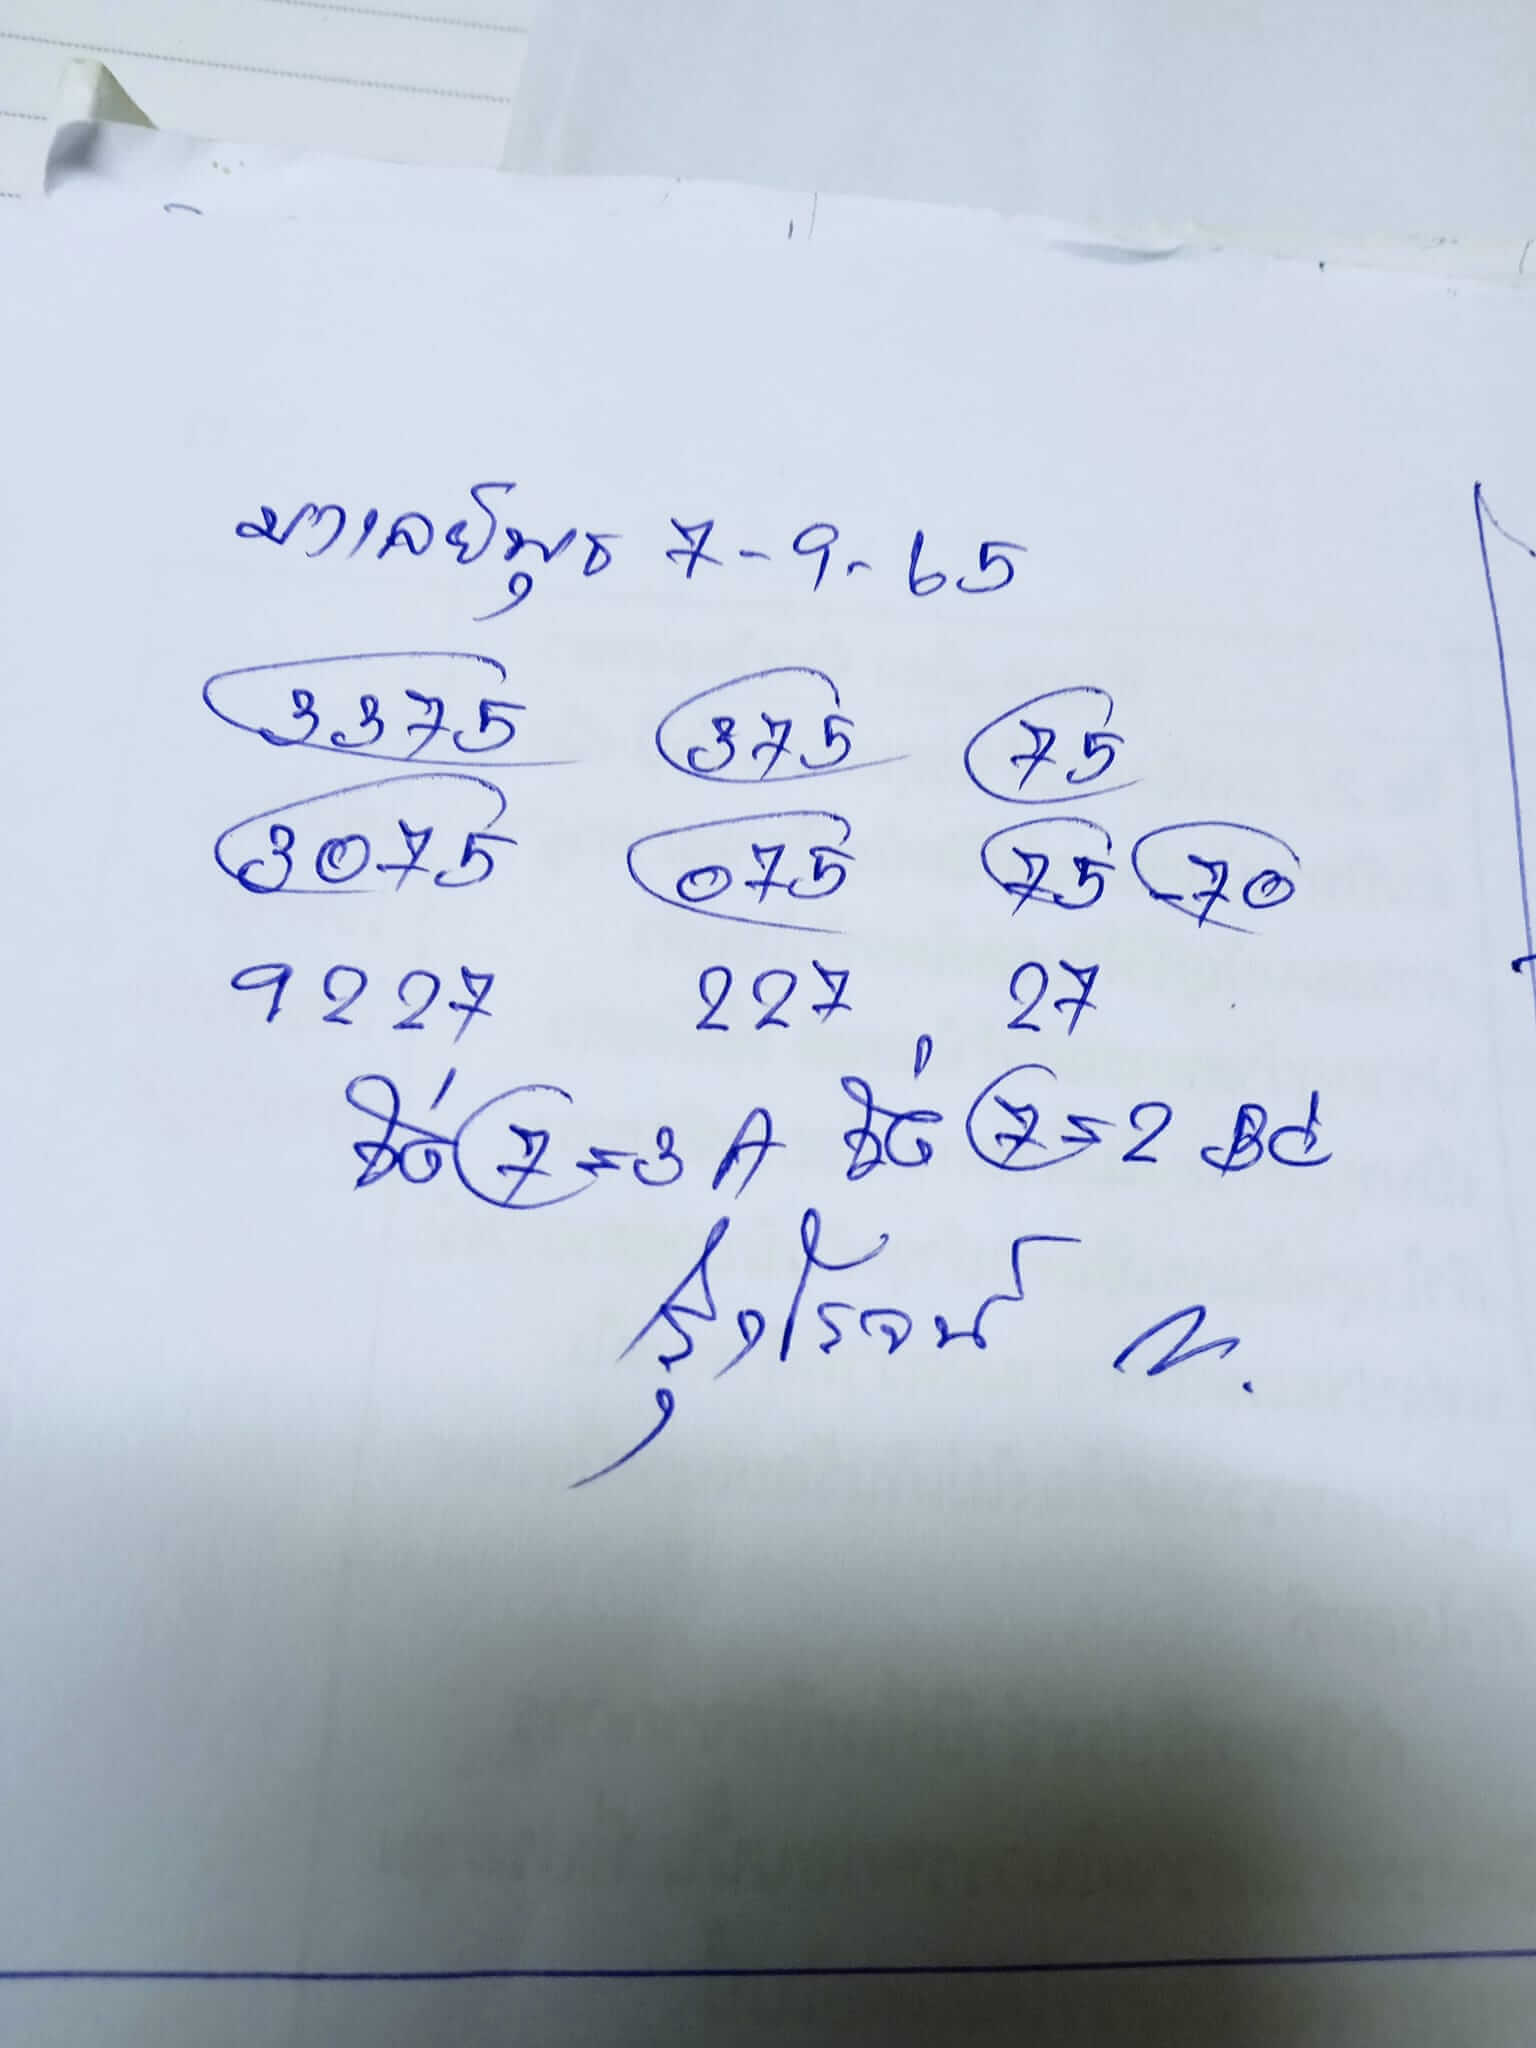 มาเลย์พุธ 7-9-65
3375 375 75
3075 075 75-70
9227 227 27
7=3 A 7=2 Bc
รุ่งโรจน์